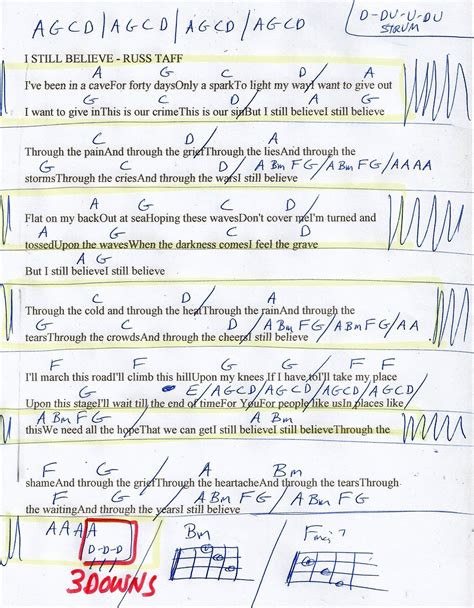 AGCD/AGCD/AGCD/AGCD
D-DU-U-DU
STRUM
I STILL BELIEVE - RUSS TAFF
A G C D A
I've been in a caveFor forty daysOnly a sparkTo light my wayI want to give out
G C D
I want to give inThis is our crimeThis is our sinBut I still believeI still believe
C D A
Through the painAnd through the griefThrough the liesAnd through the
G C D A Bm F G/A Bm F G/AAAA
stormsThrough the criesAnd through the warsI still believe
A G C D A
Flat on my backOut at seaHoping these wavesDon't cover meI'm turned and
G C D
tossedUpon the wavesWhen the darkness comesI feel the grave
A G
But I still believeI still believe
C D A
Through the cold and through the heatThrough the rainAnd through the
G C D A Bm F G/A Bm F G/AA
tearsThrough the crowdsAnd through the cheersI still believe
F G F G F
I'll march this roadI'll climb this hillUpon my knees If I have toI'll take my place
G E/AGCD/AGCD/AGCD/AGCD/
Upon this stageI'll wait till the end of timeFor YouFor people like usIn places like
A Bm F G A Bm
thisWe need all the hopeThat we can getI still believeI still believeThrough the
F G A Bm
shameAnd through the griefThrough the heartacheAnd through the tearsThrough
F G A Bm F G/A Bm F G
the waitingAnd through the yearsI still believe
AAAA
D-D-D
3DOWNS
Bm